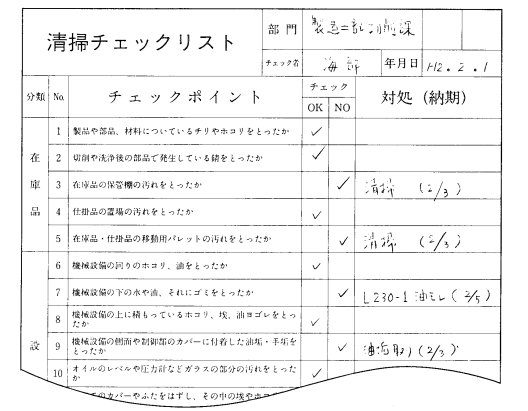 清掃チェックリスト
部門 製造二部切削課
チェック者 海部 年月日 H2.2.1
分類 No. チェックポイント チェック 対処(納期)
OK NO
在庫品
1 製品や部品、材料についているチリやホコリをとったか ✓
2 切削や洗浄後の部品で発生している錆をとったか ✓
3 在庫品の保管棚の汚れをとったか ✓ 清掃 (2/3)
4 仕掛品の置場の汚れをとったか ✓
5 在庫品・仕掛品の移動用パレットの汚れをとったか ✓ 清掃 (2/3)
設
6 機械設備の回りのホコリ、油をとったか ✓
7 機械設備の下の水や油、それにゴミをとったか ✓ L230-1 油モレ(2/5)
8 機械設備の上に積もっているホコリ、埃、油ヨゴレをとっ
たか ✓
9 機械設備の側面や制御部のカバーに付着した油垢・手垢を
とったか ✓ 油垢取り(2/3)
10 オイルのレベルや圧力計などガラスの部分の汚れをとった
か ✓
のカバーやふたをはずし、その中の埃やホコ